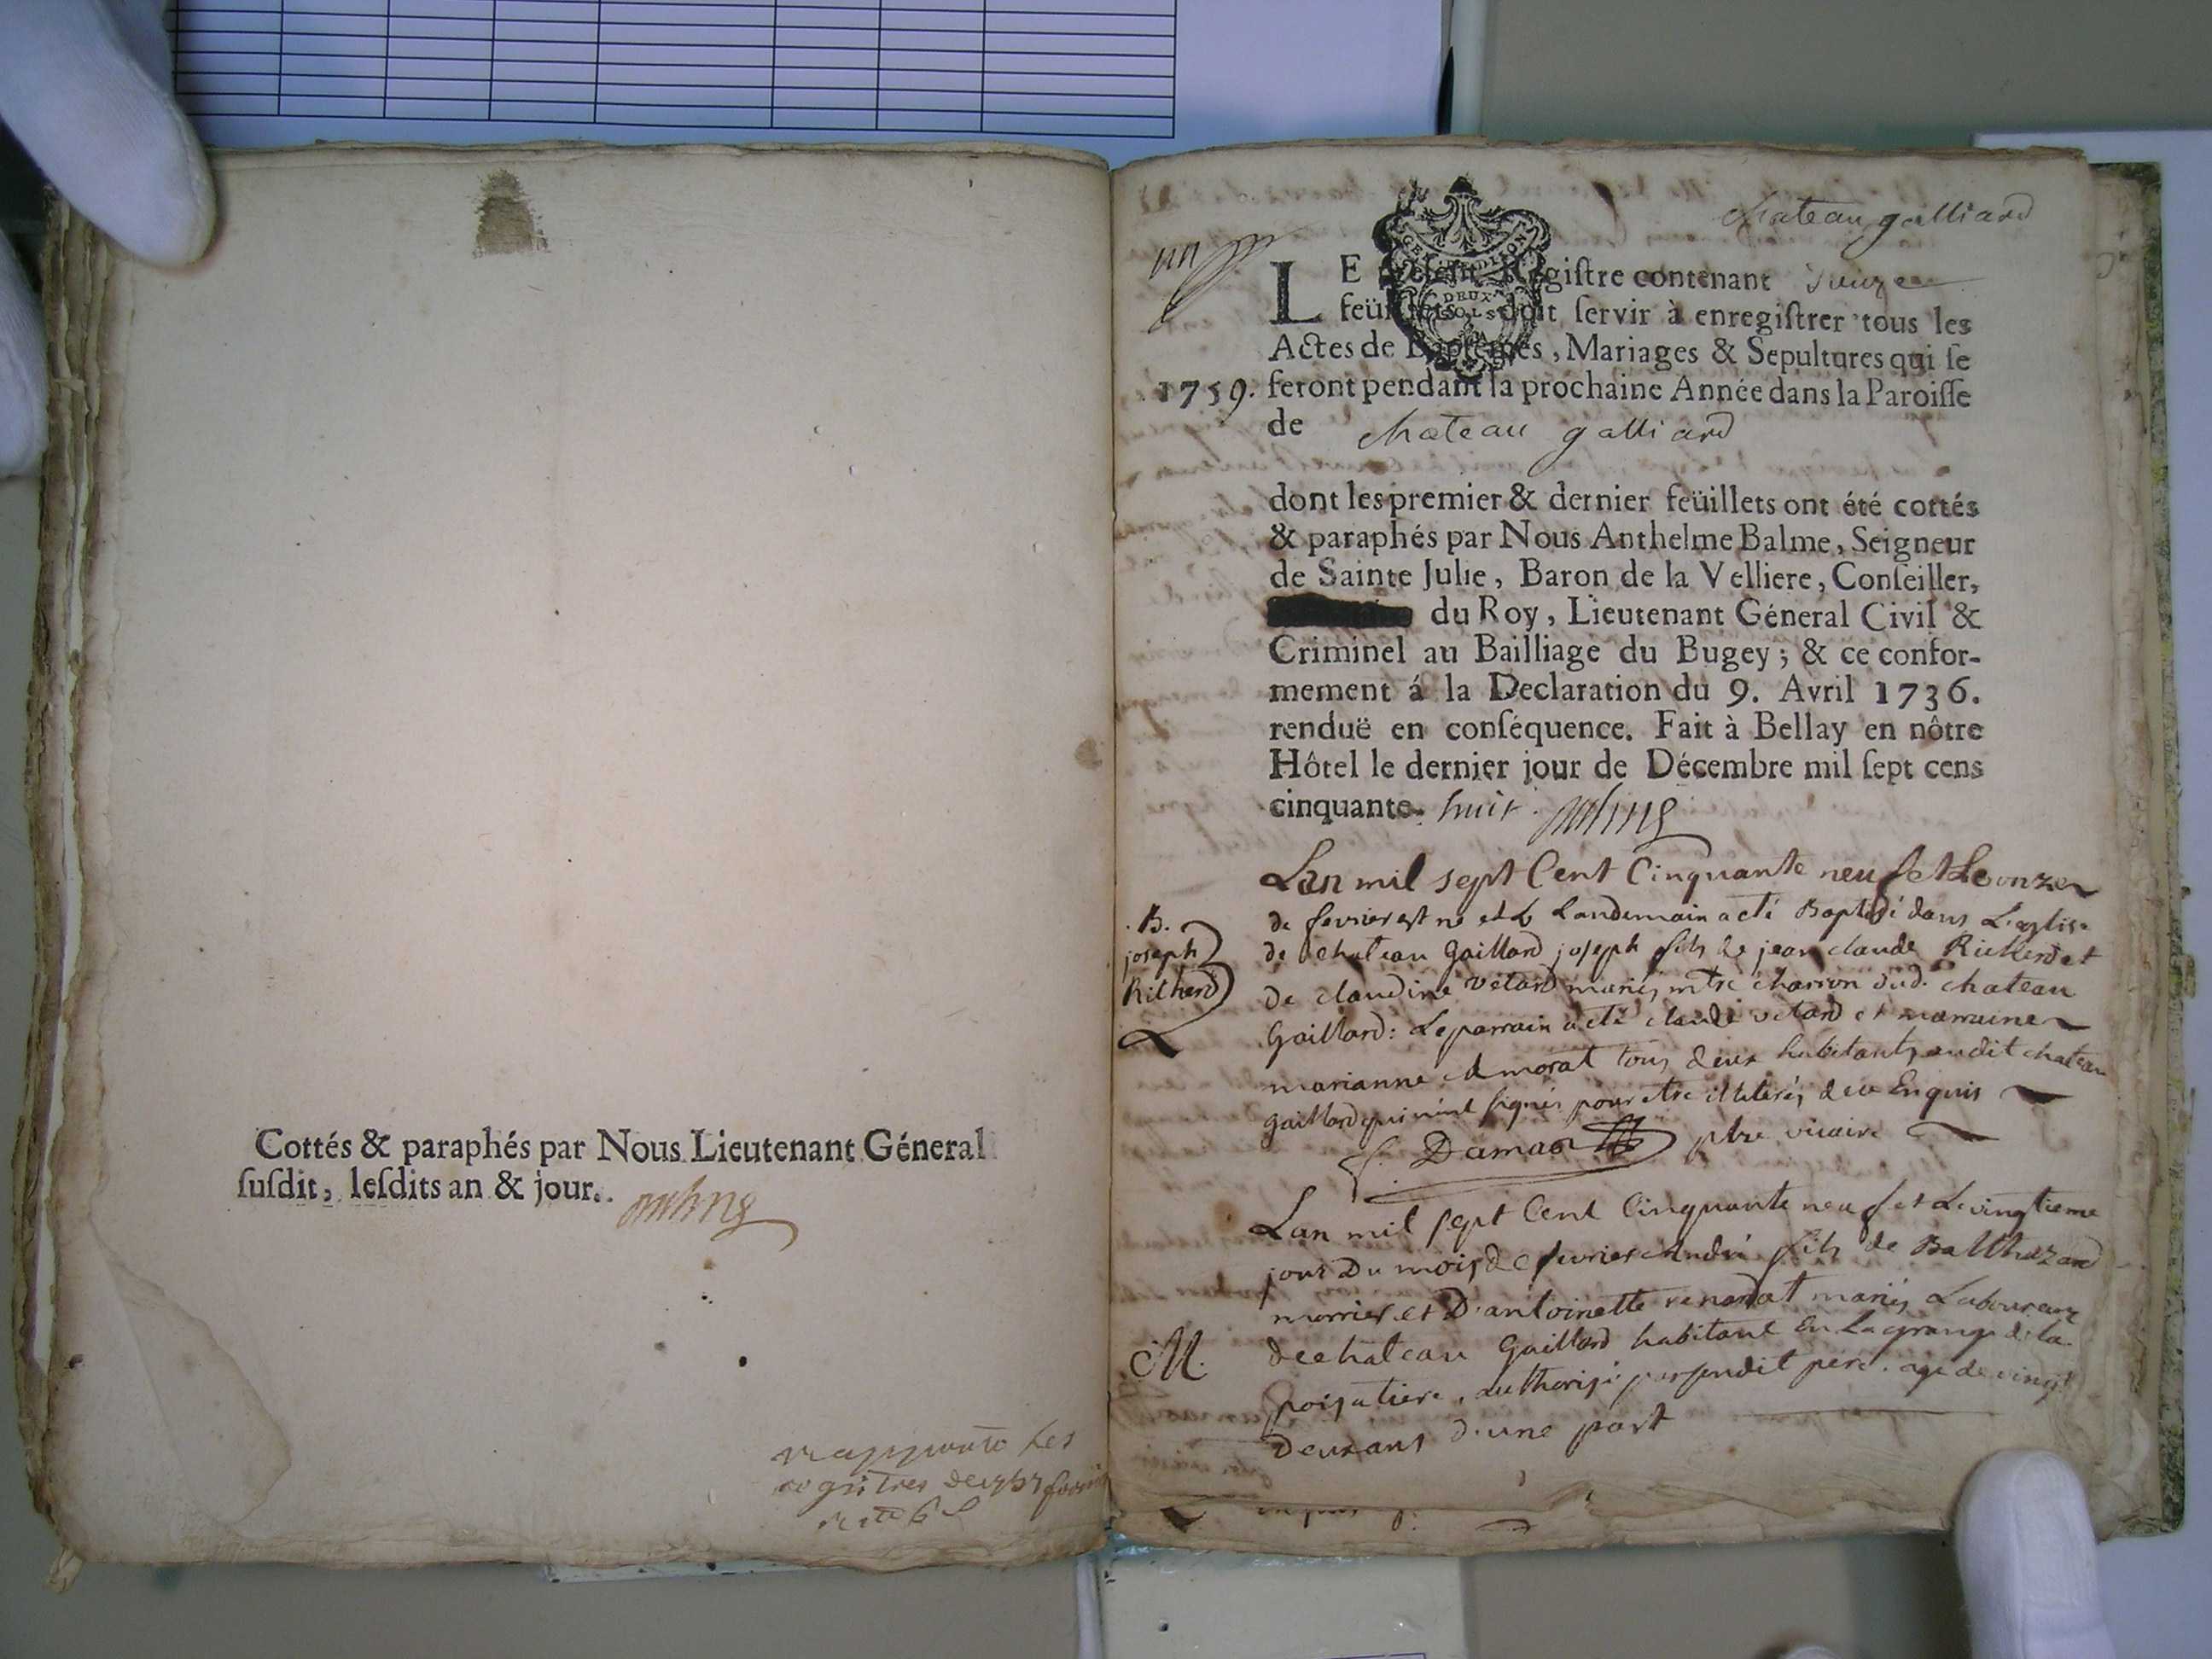 Cottés & paraphés par Nous Lieutenant Géneral
ſuſdit, leſdits an & jour.
chateau galliard
un
LE preſent Regiſtre contenant
feüillets, doit ſervir à enregiſtrer tous les
Actes de Baptêmes, Mariages & Sepultures qui ſe
1759. feront pendant la prochaine Année dans la Paroiſſe
de chateau galliard
dont les premier & dernier feüillets ont été cottés
& paraphés par Nous Anthelme Balme, Seigneur
de Sainte Julie, Baron de la Velliere, Conſeiller,
du Roy, Lieutenant Géneral Civil &
Criminel au Bailliage du Bugey; & ce confor-
mement á la Declaration du 9. Avril 1736.
renduë en conſéquence. Fait à Bellay en nôtre
Hôtel le dernier jour de Décembre mil ſept cens
cinquante- huit
Lan mil sept Cent Cinquante neuf et Le onze
de fevrier est né et le Landemain a eté Baptisé dans L'eglise
de chateau Gaillard joseph fils de jean claude Richerd et
de claudine vétard mariés mtre charron dud. chateau
Gaillard: Le parrain a eté claude vetard et marraine
marianne Amorat tous deux habitants audit chateau
Gaillard qui n'ont signés pour etre illiterés de ce Enquis
Damas ptre vicaire
B.
joseph
Richerd
Lan mil sept Cent Cinquante neuf et Le vingtieme
jour Du mois de fevrier André fils de Balthazard
morrier et D'antoinette renardat mariés Laboureurs
de chateau Gaillard habitant En La grange de la
poisatiere, authorisé par sondit pere. agé de vingt
Deux ans d'une part
M.